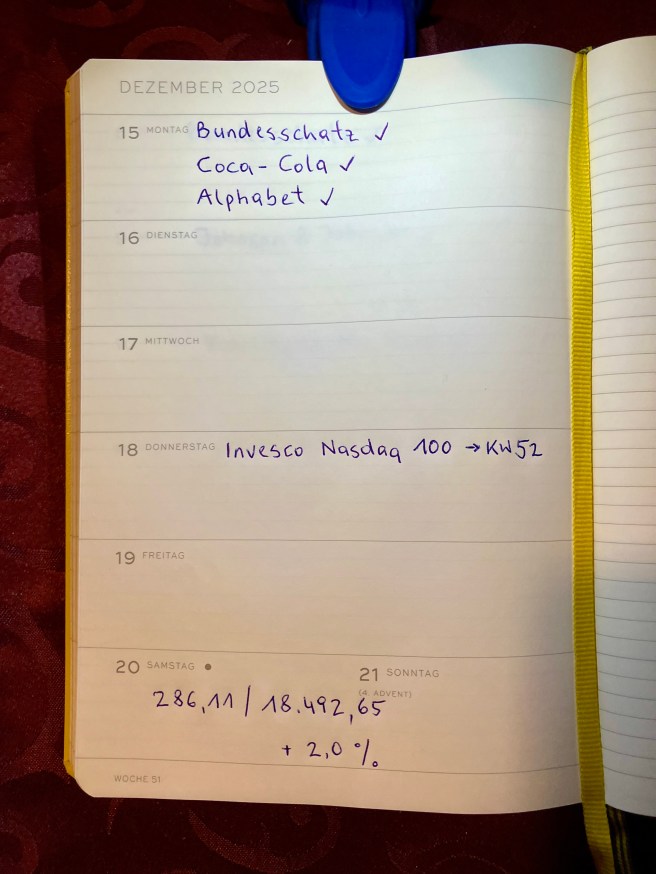 DEZEMBER 2025
15 MONTAG Bundesschatz ✓
Coca-Cola ✓
Alphabet ✓
16 DIENSTAG
17 MITTWOCH
18 DONNERSTAG Invesco Nasdaq 100 → KW52
19 FREITAG
20 SAMSTAG ●
21 SONNTAG
(4. ADVENT)
286,11 / 18.492,65
+ 2,0 %
WOCHE 51